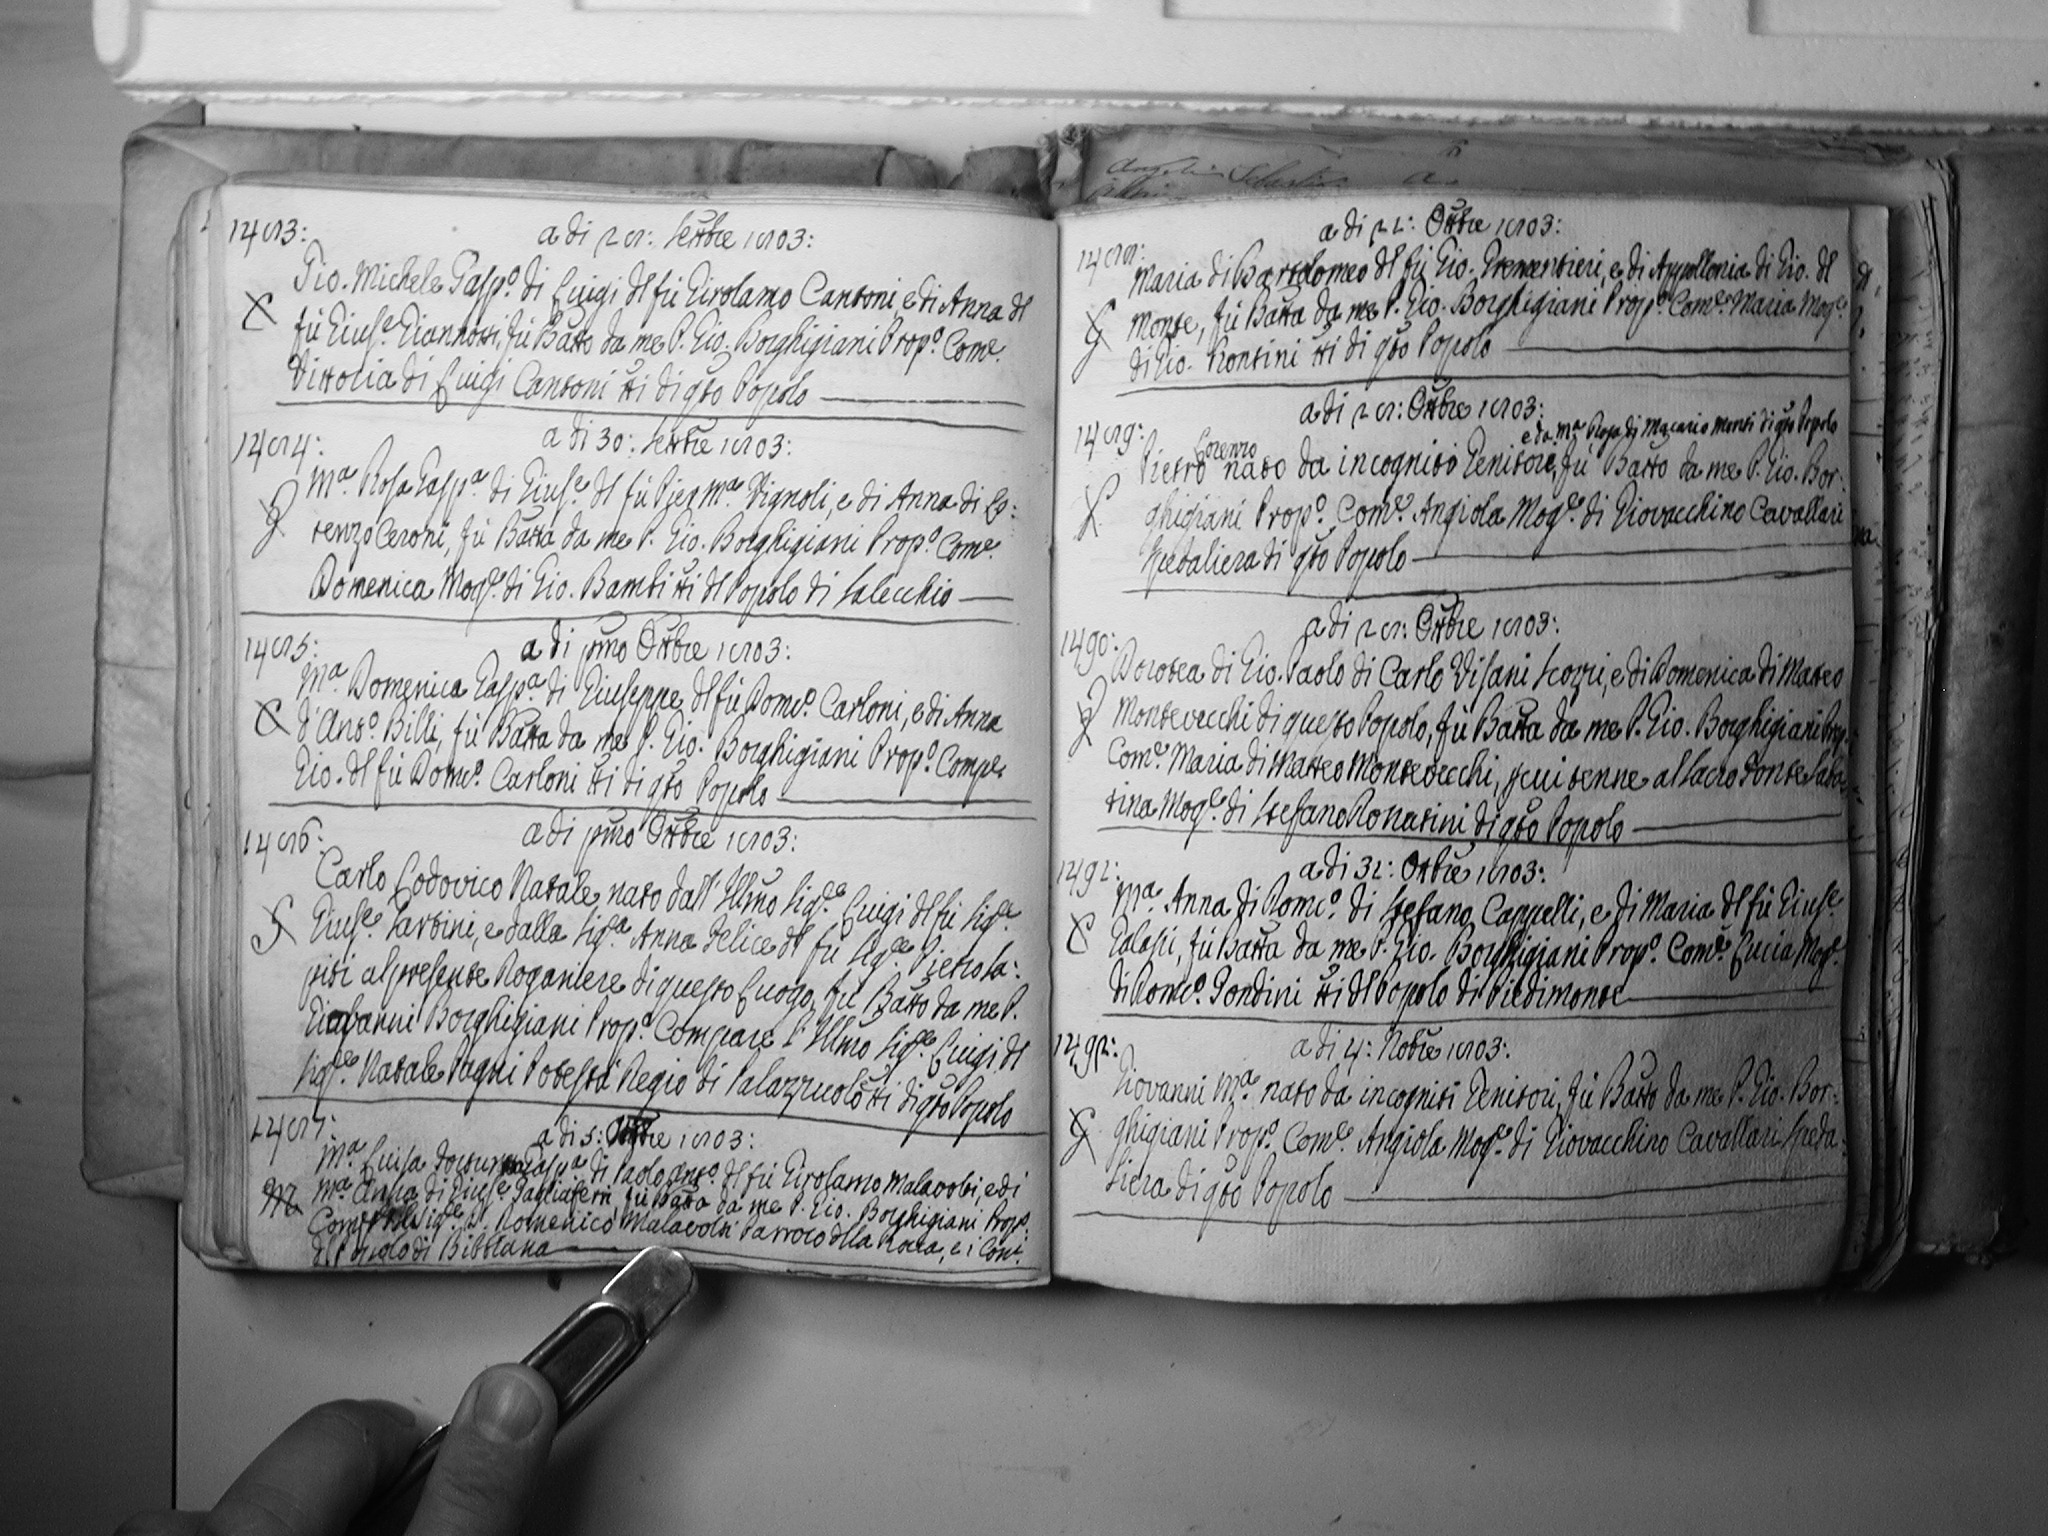 1483: a di 28: Settbre 1803:
Gio. Michele Gasp.o di Luigi dl fù Girolamo Cantoni, e di Anna dl
fù Gius.e Giannotti, fù Batto da me P. Gio. Borghigiani Prop.o Com.e
Vittoria di Luigi Cantoni tti di qto Popolo
1484: a di 30: Settbre 1803:
M.a Rosa Gasp.a di Gius.e dl fù Pier M.a Vignoli, e di Anna di Lo:
renzo Ceroni, fù Batta da me P. Gio. Borghigiani Prop.o Com.e
Domenica Mog.e di Gio. Bambi tti dl Popolo di Salecchio
1485: a di pmo Ottbre 1803:
M.a Domenica Gasp.a di Giuseppe dl fù Dom.o Carloni, e di Anna
d'Ant.o Billi, fù Batta da me P. Gio. Borghigiani Prop.o Comp.e
Gio. dl fù Dom.o Carloni tti di qto Popolo
1486: a di pmo Ottbre 1803:
Carlo Lodovico Natale nato dall' Illmo Sig.e Luigi dl fù Sig.e
Gius.e Sartini, e dalla Sig.a Anna Felice dl fù Sig.e Pietro Sa:
pisi al presente Doganiere di questo Luogo, fù Batto da me P.
Giovanni Borghigiani Prop.o Compare l' Illmo Sig.e Luigi dl
Sig.e Natale Pagni Potestà Regio di Palazzuolo tti di qto Popolo
1487: a di 5: Ottbre 1803:
M.a Luisa Gasp.a di Paolo Ant.o dl fù Girolamo Malavolti, e di
M.a Anna di Gius.e Tagliaferri, fù Batta da me P. Gio. Borghigiani Prop.o
Comp.e Sig.e D. Domenico Malavolti Parroco dlla Rocca, e i Con.i
dl Popolo di Bibbiana
1488: a di 21: Ottbre 1803:
Maria di Bartolomeo dl fù Gio. Trementieri, e di Appollonia di Gio. dl
Monte, fù Batta da me P. Gio. Borghigiani Prop.o Com.e Maria Mog.e
di Gio. Rontini tti di qto Popolo
1489: a di 28: Ottbre 1803:
e da M.a Rosa di Macario Monti di qto Popolo
Pietro Lorenzo nato da incognito Genitore, fù Batto da me P. Gio. Bor:
ghigiani Prop.o Com.e Angiola Mog.e di Giovacchino Cavallari
Spedaliera di qto Popolo
1490: a di 28: Ottbre 1803:
Dorotea di Gio. Paolo di Carlo Visani Scozzi, e di Domenica di Matteo
Montevecchi di questo Popolo, fù Batta da me P. Gio. Borghigiani Prop.
Com.e Maria di Matteo Montevecchi, p cui tenne al Sacro Fonte Saba:
tina Mog.e di Stefano Donatini di qto Popolo
1491: a di 31: Ottbre 1803:
M.a Anna di Dom.o di Stefano Cappelli, e di Maria dl fù Gius.e
Galassi, fù Batta da me P. Gio. Borghigiani Prop.o Com.e Lucia Mog.e
di Dom.o Fondini tti dl Popolo di Piedimonte
1492: a di 4: Nobre 1803:
Giovanni M.a nato da incogniti Genitori, fù Batto da me P. Gio. Bor:
ghigiani Prop.o Com.e Angiola Mog.e di Giovacchino Cavallari Speda:
liera di qto Popolo